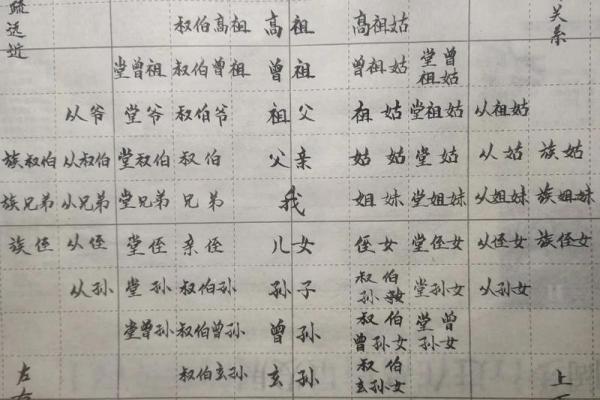 疏远近
关系
叔伯高祖 高祖 高祖姑
堂曾祖 叔伯曾祖 曾祖 曾祖姑 堂曾祖姑
从爷 堂爷 叔伯爷 祖父 祖姑 堂祖姑 从祖姑
族叔伯 从叔伯 堂叔伯 叔伯 父亲 姑姑 堂姑 从姑 族姑
族兄弟 从兄弟 堂兄弟 兄弟 我 姐妹 堂姐妹 从姐妹 族姐妹
族侄 从侄 堂侄 亲侄 儿女 侄女 堂侄女 从侄女 族侄女
从孙 堂孙 叔伯孙 孙子 叔伯孙女 堂孙女 从孙女
堂曾孙 叔伯曾孙 曾孙 叔伯曾孙女 堂曾孙女
叔伯玄孙 玄孙 叔伯玄孙女
左
上